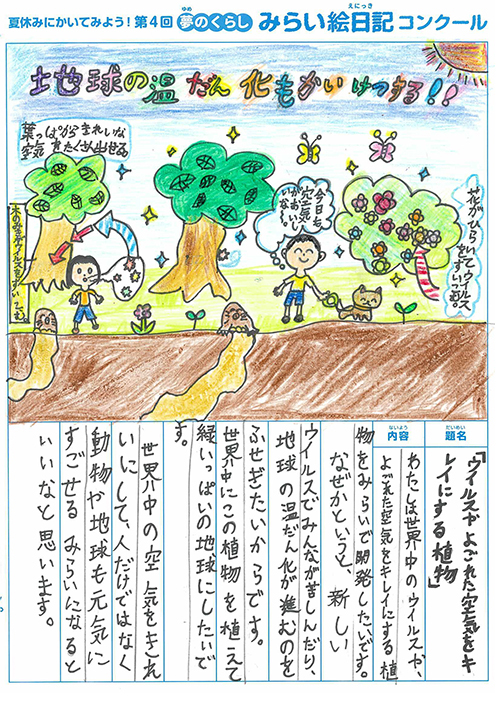 夏休みにかいてみよう！第4回 夢のくらし みらい絵日記コンクール
ゆめ
えにっき
地球の温だん化もかいけつする!!
葉っぱからきれいな
空気をたくさん出せる
木のみきがウイルスをすいこむ。
今日も
空気
がおいし
いなぁ。
花がひらいてウイルス
をすいこむ。
だいめい
題名
「ウイルスやよごれた空気をキ
レイにする植物」
ないよう
内容
わたしは世界中のウイルスや、
よごれた空気をキレイにする植
物をみらいで開発したいです。
なぜかというと、新しい
ウイルスでみんなが苦しんだり、
地球の温だん化が進むのを
ふせぎたいからです。
世界中にこの植物を植えて
緑いっぱいの地球にしたいで
す。
世界中の空気をきれ
いにして、人だけではなく
動物や地球も元気に
すごせるみらいになると
いいなと思います。